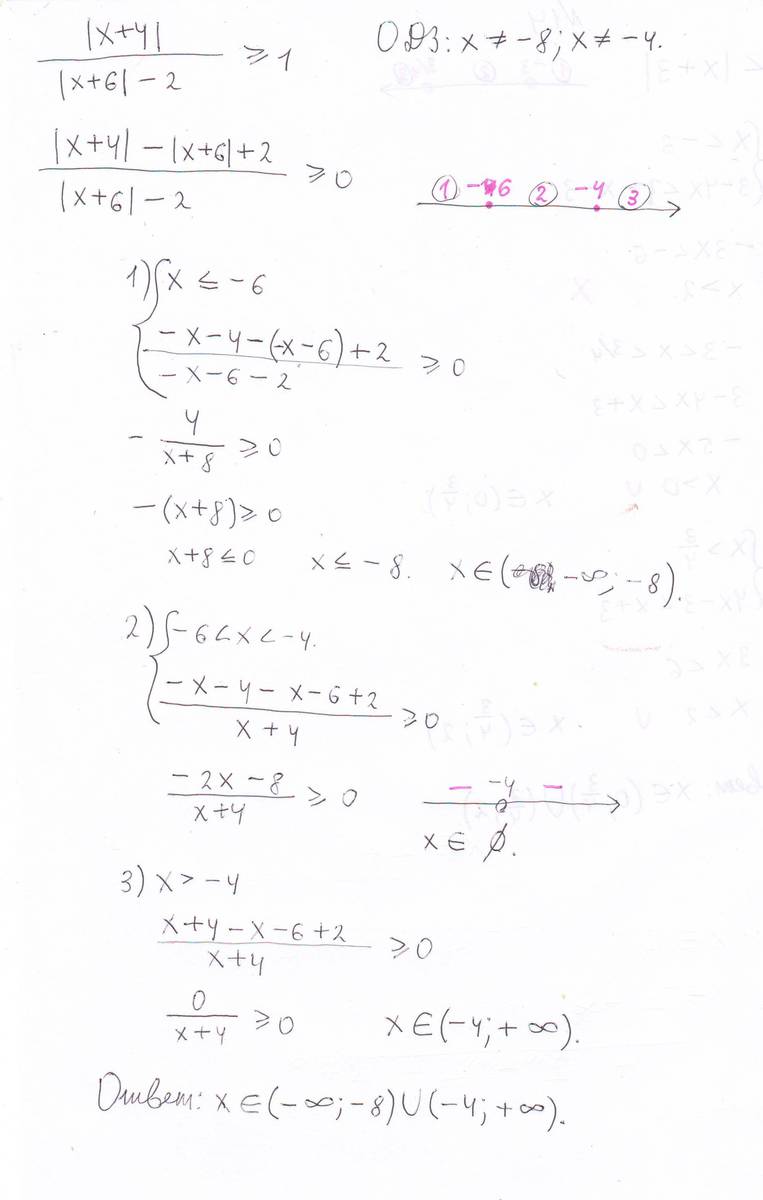 |x+4| / (|x+6| - 2) ⩾ 1 ОДЗ: x ≠ -8; x ≠ -4.
(|x+4| - |x+6| + 2) / (|x+6| - 2) ⩾ 0
① -6 ② -4 ③
1) { x ≤ -6
(-x-4-(-x-6)+2) / (-x-6-2) ⩾ 0
- 4 / (x+8) ⩾ 0
-(x+8) ⩾ 0
x+8 ≤ 0 x ≤ -8. x ∈ (-∞; -8).
2) { -6 < x < -4.
(-x-4-x-6+2) / (x+4) ⩾ 0
(-2x-8) / (x+4) ⩾ 0
- -4 -
x ∈ ∅.
3) x > -4
(x+4-x-6+2) / (x+4) ⩾ 0
0 / (x+4) ⩾ 0 x ∈ (-4; +∞).
Ответ: x ∈ (-∞; -8) ∪ (-4; +∞).